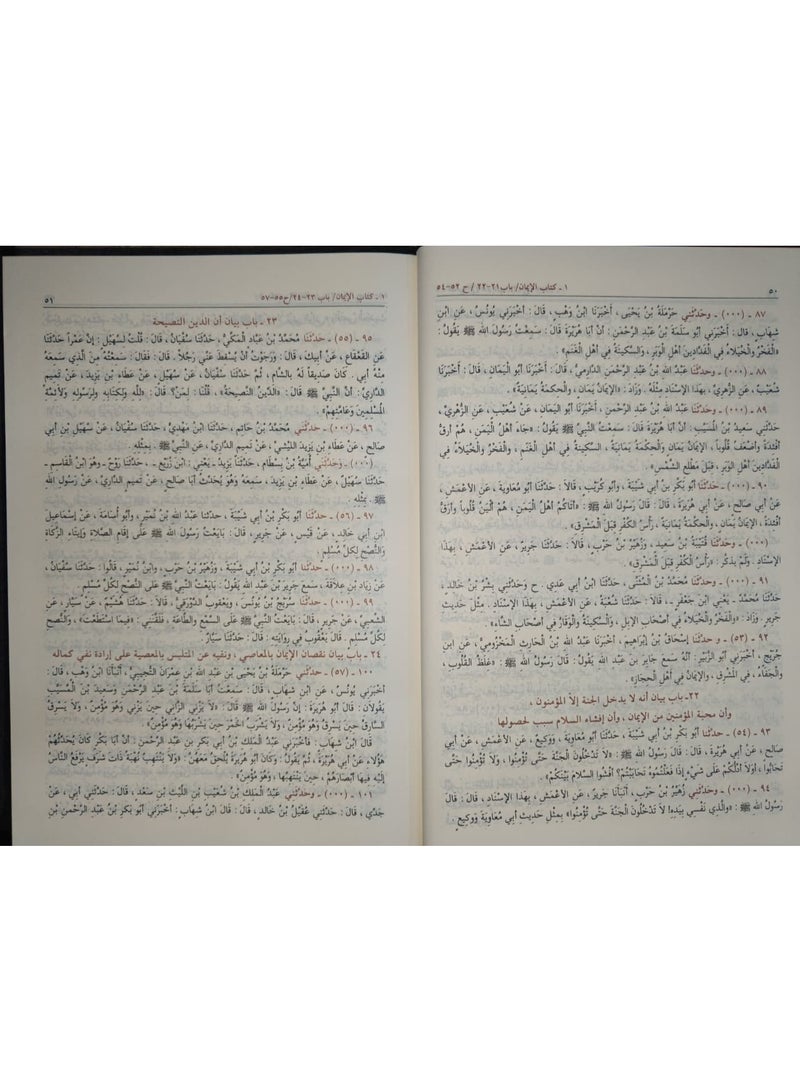 ٥٠
١ - كتاب الإيمان/ باب ٢١-٢٢ / ح ٥٢-٥٤
٨٧ - (٠٠٠) - وحدّثني حَرْمَلَةُ بْنُ يَحْيَى ، أَخْبَرَنَا ابْنُ وَهْبٍ ، قَالَ : أَخْبَرَنِي يُونُسُ ، عَنِ ابْنِ
شِهَابٍ ، قَالَ : أَخْبَرَنِي أَبُو سَلَمَةَ بْنُ عَبْدِ الرَّحْمٰنِ : أَنَّ أَبَا هُرَيْرَةَ قَالَ : سَمِعْتُ رَسُولَ اللهِ ﷺ يَقُولُ :
«الْفَخْرُ وَالْخُيَلَاءُ فِي الْفَدَّادِينَ أَهْلِ الْوَبَرِ ، وَالسَّكِينَةُ فِي أَهْلِ الْغَنَمِ» .
٨٨ - (٠٠٠) - وحدّثنا عَبْدُ اللهِ بْنُ عَبْدِ الرَّحْمٰنِ الدَّارِمِيُّ ، أَخْبَرَنَا أَبُو الْيَمَانِ ، قَالَ : أَخْبَرَنَا
شُعَيْبٌ ، عَنِ الزُّهْرِيِّ ، بِهٰذَا الْإِسْنَادِ مِثْلَهُ . وَزَادَ : «الْإِيمَانُ يَمَانٍ ، وَالْحِكْمَةُ يَمَانِيَةٌ» .
٨٩ - (٠٠٠) - وحدّثنا عَبْدُ اللهِ بْنُ عَبْدِ الرَّحْمٰنِ ، أَخْبَرَنَا أَبُو الْيَمَانِ ، عَنْ شُعَيْبٍ ، عَنِ الزُّهْرِيِّ ،
حَدَّثَنِي سَعِيدُ بْنُ الْمُسَيِّبِ : أَنَّ أَبَا هُرَيْرَةَ قَالَ : سَمِعْتُ النَّبِيَّ ﷺ يَقُولُ : «جَاءَ أَهْلُ الْيَمَنِ ، هُمْ أَرَقُّ
أَفْئِدَةً وَأَضْعَفُ قُلُوباً ، الْإِيمَانُ يَمَانٍ وَالْحِكْمَةُ يَمَانِيَةٌ ، السَّكِينَةُ فِي أَهْلِ الْغَنَمِ ، وَالْفَخْرُ وَالْخُيَلَاءُ فِي
الْفَدَّادِينَ أَهْلِ الْوَبَرِ ، قِبَلَ مَطْلِعِ الشَّمْسِ» .
٩٠ - (٠٠٠) - حدّثنا أَبُو بَكْرِ بْنُ أَبِي شَيْبَةَ ، وَأَبُو كُرَيْبٍ ، قَالَا : حَدَّثَنَا أَبُو مُعَاوِيَةَ ، عَنِ الْأَعْمَشِ ،
عَنْ أَبِي صَالِحٍ ، عَنْ أَبِي هُرَيْرَةَ ، قَالَ : قَالَ رَسُولُ اللهِ ﷺ : «أَتَاكُمْ أَهْلُ الْيَمَنِ ، هُمْ أَلْيَنُ قُلُوباً وَأَرَقُّ
أَفْئِدَةً ، الْإِيمَانُ يَمَانٍ ، وَالْحِكْمَةُ يَمَانِيَةٌ ، رَأْسُ الْكُفْرِ قِبَلَ الْمَشْرِقِ» .
(٠٠٠) - وحدّثنا قُتَيْبَةُ بْنُ سَعِيدٍ ، وَزُهَيْرُ بْنُ حَرْبٍ ، قَالَا : حَدَّثَنَا جَرِيرٌ ، عَنِ الْأَعْمَشِ ، بِهٰذَا
الْإِسْنَادِ . وَلَمْ يَذْكُرْ : «رَأْسُ الْكُفْرِ قِبَلَ الْمَشْرِقِ» .
٩١ - (٠٠٠) - وحدّثنا مُحَمَّدُ بْنُ الْمُثَنَّى ، حَدَّثَنَا ابْنُ أَبِي عَدِيٍّ . ح وَحَدَّثَنِي بِشْرُ بْنُ خَالِدٍ ،
حَدَّثَنَا مُحَمَّدٌ - يَعْنِي ابْنَ جَعْفَرٍ - ، قَالَا : حَدَّثَنَا شُعْبَةُ ، عَنِ الْأَعْمَشِ ، بِهٰذَا الْإِسْنَادِ . مِثْلَ حَدِيثِ
جَرِيرٍ . وَزَادَ : «وَالْفَخْرُ وَالْخُيَلَاءُ فِي أَصْحَابِ الْإِبِلِ ، وَالسَّكِينَةُ وَالْوَقَارُ فِي أَصْحَابِ الشَّاءِ» .
٩٢ - (٥٣) - و حدّثنا إِسْحَاقُ بْنُ إِبْرَاهِيمَ ، أَخْبَرَنَا عَبْدُ اللهِ بْنُ الْحَارِثِ الْمَخْزُومِيُّ ، عَنِ ابْنِ
جُرَيْجٍ ، أَخْبَرَنِي أَبُو الزُّبَيْرِ : أَنَّهُ سَمِعَ جَابِرَ بْنَ عَبْدِ اللهِ يَقُولُ : قَالَ رَسُولُ اللهِ ﷺ : «غِلَظُ الْقُلُوبِ ،
وَالْجَفَاءُ ، فِي الْمَشْرِقِ ، وَالْإِيمَانُ فِي أَهْلِ الْحِجَازِ» .
٢٢- باب بيان أنه لا يدخل الجنة إلاّ المؤمنون ،
وأن محبة المؤمنين من الإيمان، وأن إفشاء السلام سبب لحصولها
٩٣ - (٥٤) - حدّثنا أَبُو بَكْرِ بْنُ أَبِي شَيْبَةَ ، حَدَّثَنَا أَبُو مُعَاوِيَةَ ، وَوَكِيعٌ ، عَنِ الْأَعْمَشِ ، عَنْ أَبِي
صَالِحٍ ، عَنْ أَبِي هُرَيْرَةَ ، قَالَ : قَالَ رَسُولُ اللهِ ﷺ : «لَا تَدْخُلُونَ الْجَنَّةَ حَتَّى تُؤْمِنُوا ، وَلَا تُؤْمِنُوا حَتَّى
تَحَابُّوا ، أَوَلَا أَدُلُّكُمْ عَلَى شَيْءٍ إِذَا فَعَلْتُمُوهُ تَحَابَبْتُمْ؟ أَفْشُوا السَّلَامَ بَيْنَكُمْ» .
٩٤ - (٠٠٠) - وحدّثني زُهَيْرُ بْنُ حَرْبٍ ، أَنْبَأَنَا جَرِيرٌ، عَنِ الْأَعْمَشِ ، بِهٰذَا الْإِسْنَادِ، قَالَ : قَالَ
رَسُولُ اللهِ ﷺ : «وَالَّذِي نَفْسِي بِيَدِهِ! لَا تَدْخُلُونَ الْجَنَّةَ حَتَّى تُؤْمِنُوا» بِمِثْلِ حَدِيثِ أَبِي مُعَاوِيَةَ وَوَكِيعٍ .
١ - كتاب الإيمان/ باب ٢٣-٢٤/ح٥٥-٥٧
٥١
٢٣ - باب بيان أن الدين النصيحة
٩٥ - (٥٥) - حدّثنا مُحَمَّدُ بْنُ عَبَّادٍ الْمَكِّيُّ ، حَدَّثَنَا سُفْيَانُ ، قَالَ : قُلْتُ لِسُهَيْلٍ : إِنَّ عَمْراً حَدَّثَنَا
عَنِ الْقَعْقَاعِ ، عَنْ أَبِيكَ ، قَالَ : وَرَجَوْتُ أَنْ يُسْقِطَ عَنِّي رَجُلاً . قَالَ : فَقَالَ : سَمِعْتُهُ مِنَ الَّذِي سَمِعَهُ
مِنْهُ أَبِي . كَانَ صَدِيقاً لَهُ بِالشَّامِ ، ثُمَّ حَدَّثَنَا سُفْيَانُ ، عَنْ سُهَيْلٍ ، عَنْ عَطَاءِ بْنِ يَزِيدَ، عَنْ تَمِيمٍ
الدَّارِيِّ: أَنَّ النَّبِيَّ ﷺ قَالَ : «الدِّينُ النَّصِيحَةُ» ، قُلْنَا : لِمَنْ؟ قَالَ : «لِلّٰهِ وَلِكِتَابِهِ وَلِرَسُولِهِ وَلِأَئِمَّةِ
الْمُسْلِمِينَ وَعَامَّتِهِمْ» .
٩٦ - (٠٠٠) - حدّثني مُحَمَّدُ بْنُ حَاتِمٍ ، حَدَّثَنَا ابْنُ مَهْدِيٍّ ، حَدَّثَنَا سُفْيَانُ ، عَنْ سُهَيْلِ بْنِ أَبِي
صَالِحٍ ، عَنْ عَطَاءِ بْنِ يَزِيدَ اللَّيْثِيِّ ، عَنْ تَمِيمٍ الدَّارِيِّ ، عَنِ النَّبِيِّ ﷺ ، بِمِثْلِهِ .
(٠٠٠) - وَحَدَّثَنِي أُمَيَّةُ بْنُ بِسْطَامٍ ، حَدَّثَنَا يَزِيدُ- يَعْنِي : ابْنَ زُرَيْعٍ - ، حَدَّثَنَا رَوْحٌ - وهو ابْنُ الْقَاسِمِ -
حَدَّثَنَا سُهَيْلٌ، عَنْ عَطَاءِ بْنِ يَزِيدَ، سَمِعَهُ وَهُوَ يُحَدِّثُ أَبَا صَالِحٍ ، عَنْ تَمِيمٍ الدَّارِيِّ، عَنْ رَسُولِ اللهِ
ﷺ . بِمِثْلِهِ .
٩٧ - (٥٦) - حدّثنا أَبُو بَكْرِ بْنُ أَبِي شَيْبَةَ ، حدثنا عَبْدُ اللهِ بْنُ نُمَيْرٍ، وَأَبُو أُسَامَةَ ، عَنْ إِسْمَاعِيلَ
بْنِ أَبِي خَالِدٍ ، عَنْ قَيْسٍ ، عَنْ جَرِيرٍ ، قَالَ : بَايَعْتُ رَسُولَ اللهِ ﷺ عَلَى إِقَامِ الصَّلَاةِ وَإِيتَاءِ الزَّكَاةِ
وَالنُّصْحِ لِكُلِّ مُسْلِمٍ .
٩٨ - (٠٠٠) - حدّثنا أَبُو بَكْرِ بْنُ أَبِي شَيْبَةَ ، وَزُهَيْرُ بْنُ حَرْبٍ، وَابْنُ نُمَيْرٍ، قَالُوا : حَدَّثَنَا سُفْيَانُ ،
عَنْ زِيَادِ بْنِ عِلَاقَةَ، سَمِعَ جَرِيرَ بْنَ عَبْدِ اللهِ يَقُولُ : بَايَعْتُ النَّبِيَّ ﷺ عَلَى النُّصْحِ لِكُلِّ مُسْلِمٍ .
٩٩ - (٠٠٠) - حدّثنا سُرَيْجُ بْنُ يُونُسَ ، وَيَعْقُوبُ الدَّوْرَقِيُّ ، قَالَا : حَدَّثَنَا هُشَيْمٌ ، عَنْ سَيَّارٍ، عَنِ
الشَّعْبِيِّ، عَنْ جَرِيرٍ ، قَالَ : بَايَعْتُ النَّبِيَّ ﷺ عَلَى السَّمْعِ وَالطَّاعَةِ ، فَلَقَّنَنِي : «فِيمَا اسْتَطَعْتَ» ، وَالنُّصْحِ
لِكُلِّ مُسْلِمٍ . قَالَ يَعْقُوبُ فِي رِوَايَتِهِ : قَالَ : حَدَّثَنَا سَيَّارٌ .
٢٤ - باب بيان نقصان الإيمان بالمعاصي ، ونفيه عن المتلبس بالمعصية على إرادة نفي كماله
١٠٠ - (٥٧) - حدّثني حَرْمَلَةُ بْنُ يَحْيَى بْنِ عَبْدِ اللهِ بْنِ عِمْرَانَ التُّجِيبِيُّ ، أَنْبَأَنَا ابْنُ وَهْبٍ ، قَالَ :
أَخْبَرَنِي يُونُسُ ، عَنِ ابْنِ شِهَابٍ ، قَالَ : سَمِعْتُ أَبَا سَلَمَةَ بْنَ عَبْدِ الرَّحْمٰنِ وَسَعِيدَ بْنَ الْمُسَيَّبِ
يَقُولَانِ : قَالَ أَبُو هُرَيْرَةَ : إِنَّ رَسُولَ اللهِ ﷺ قَالَ : «لَا يَزْنِي الزَّانِي حِينَ يَزْنِي وَهُوَ مُؤْمِنٌ، وَلَا يَسْرِقُ
السَّارِقُ حِينَ يَسْرِقُ وَهُوَ مُؤْمِنٌ، وَلَا يَشْرَبُ الْخَمْرَ حِينَ يَشْرَبُهَا وَهُوَ مُؤْمِنٌ» .
قَالَ ابْنُ شِهَابٍ : فَأَخْبَرَنِي عَبْدُ الْمَلِكِ بْنُ أَبِي بَكْرِ بنِ عَبْدِ الرَّحْمٰنِ: أَنَّ أَبَا بَكْرٍ كَانَ يُحَدِّثُهُمْ
هٰؤُلَاءِ عَنْ أَبِي هُرَيْرَةَ ، ثُمَّ يَقُولُ : وَكَانَ أَبُو هُرَيْرَةَ يُلْحِقُ مَعَهُنَّ : «وَلَا يَنْتَهِبُ نُهْبَةً ذَاتَ شَرَفٍ يَرْفَعُ النَّاسُ
إِلَيْهِ فِيهَا أَبْصَارَهُمْ ، حِينَ يَنْتَهِبُهَا ، وَهُوَ مُؤْمِنٌ» .
١٠١ - (٠٠٠) - وحدّثني عَبْدُ الْمَلِكِ بْنُ شُعَيْبِ بْنِ اللَّيْثِ بْنِ سَعْدٍ ، قَالَ : حَدَّثَنِي أَبِي ، عَنْ
جَدِّي ، قَالَ : حَدَّثَنِي عُقَيْلُ بْنُ خَالِدٍ، قَالَ : قَالَ ابْنُ شِهَابٍ : أَخْبَرَنِي أَبُو بَكْرِ بْنُ عَبْدِ الرَّحْمٰنِ بْنِ